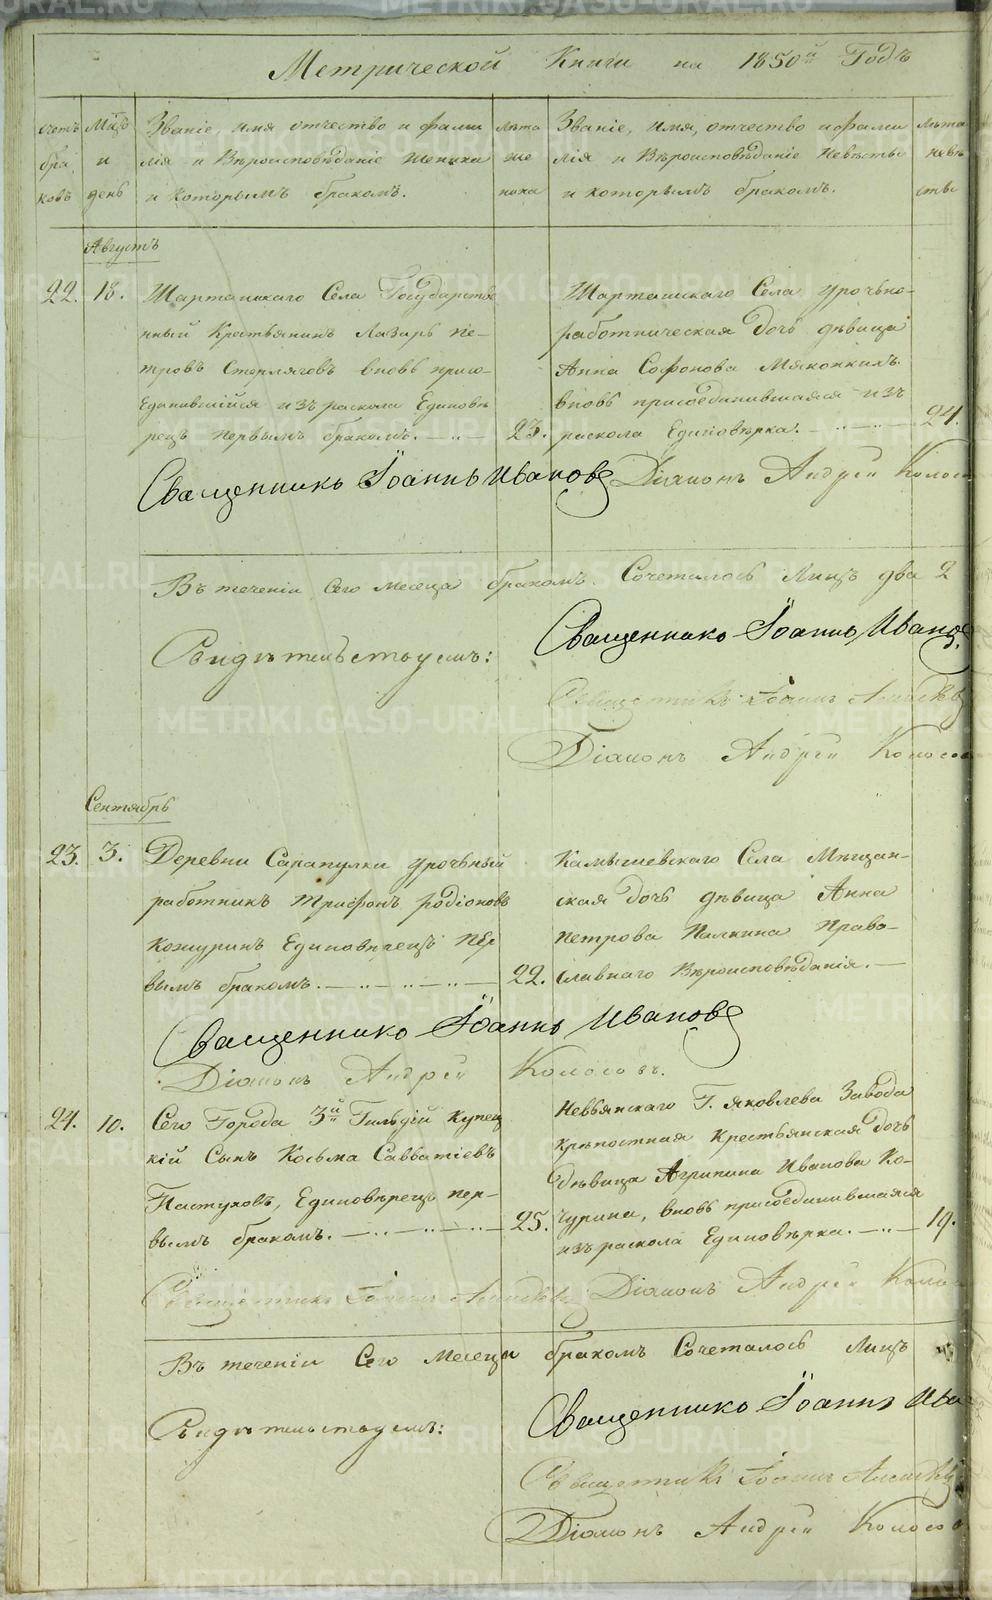 Метрической Книги на 1850й Годъ
счетъ браковъ
Мѣцъ и день
Званіе, имя отчество и фамилія и Вѣроисповѣданіе жениха и которымъ бракомъ.
лѣта жениха
Званіе, имя, отчество и фамилія и Вѣроисповѣданіе Невѣсты и которымъ бракомъ.
лѣта невѣсты
Августъ
22. 18. Шарташскаго Села Государстве
нный Крестьянинъ Лазарь Пе-
тровъ Стерляговъ вновь присо-
единившійся изъ раскола Единовѣ
рецъ первымъ бракомъ. 23.
Шарташскаго Села урочно-
работническая дочь дѣвица
Анна Софонова Мякоткихъ
вновь присоединившаяся изъ
раскола Единовѣрка. 24.
Священникъ Іоаннъ Ивановъ Діаконъ Андрей Колосо
Въ теченіи Сего месеца бракомъ Сочеталось Лицъ два 2
Священникъ Іоаннъ Иванов
Свидѣтельствуемъ:
Священникъ Іоаннъ
Діаконъ Андрей Колосо
Сентябрь
23. 3. Деревни Сарапулки урочный
работникъ Трифонъ Родіоновъ
Кожуринъ Единовѣрецъ пер
вымъ бракомъ. 22.
Камышевскаго Села Мѣщан-
ская дочь дѣвица Анна
Петрова Палкина Право-
славнаго Вѣроисповѣданія.
Священникъ Іоаннъ Ивановъ
Діаконъ Андрей Колосовъ.
24. 10. Сего Города 3й Гильдій Купец
кій Сынъ Косьма Савватіевъ
Пастуховъ, Единовѣрецъ пер-
вымъ бракомъ. 25.
Невьянскаго Г. Яковлева Завода
крѣпостная крестьянская дочь
дѣвица Агрипина Иванова Ко-
чурина, вновь присоединившаяся
изъ раскола Единовѣрка. 19.
Священникъ Іоаннъ Діаконъ Андрей Коло
Въ теченіи Сего Месеца бракомъ Сочеталось Лицъ
Священникъ Іоаннъ Ива
Свидѣтельствуемъ:
Священникъ Іоаннъ
Діаконъ Андрей Колосо
METRIKI.GASO-URAL.RU